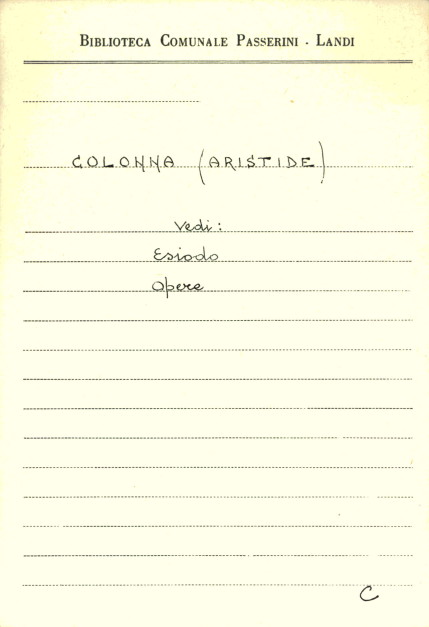 BIBLIOTECA COMUNALE PASSERINI - LANDI
COLONNA (ARISTIDE)
Vedi:
Esiodo
Opere
C